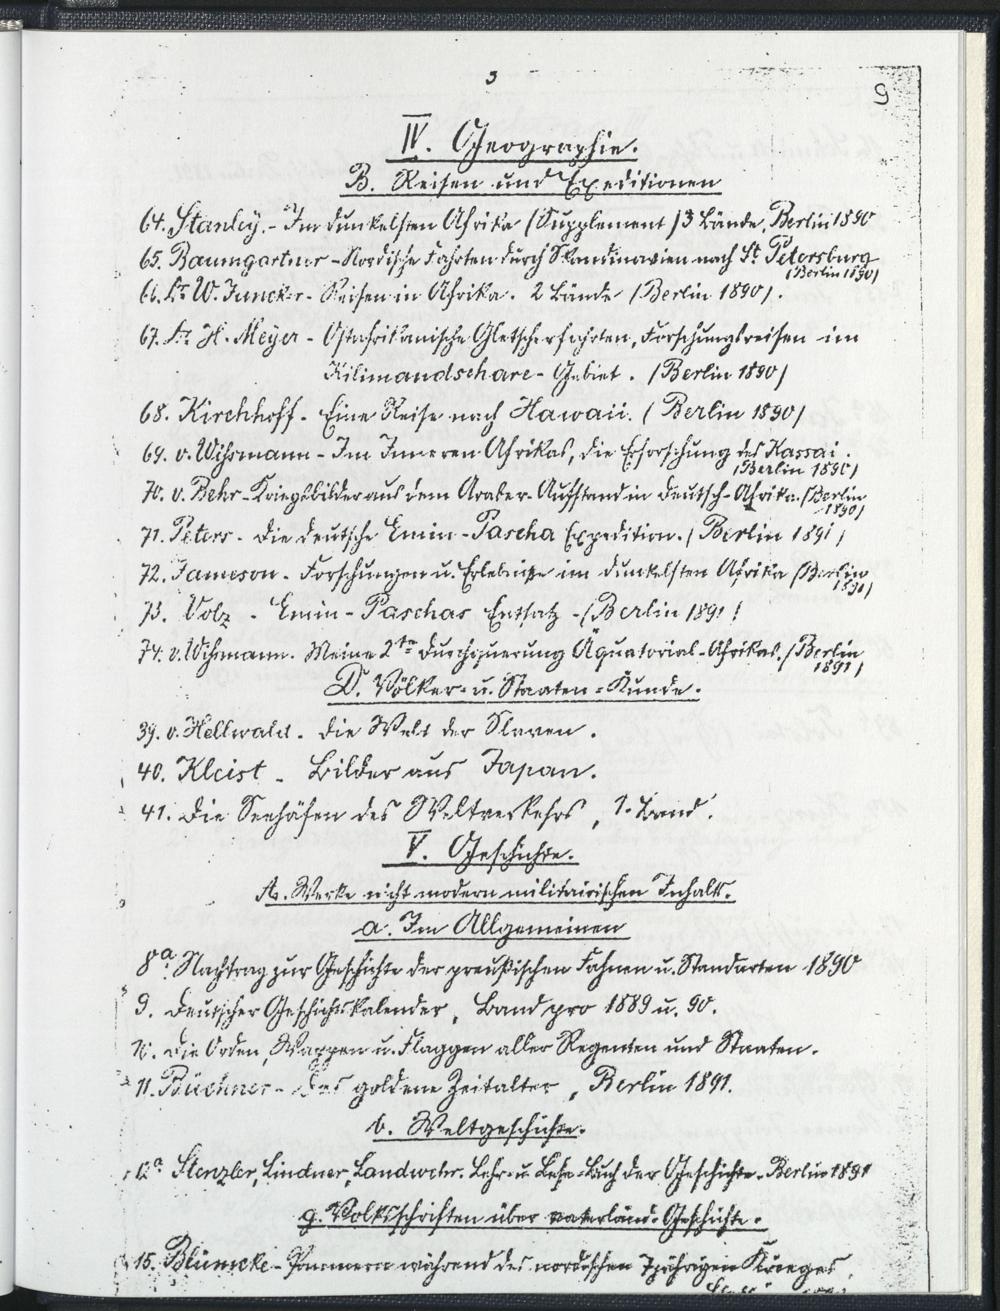 3
9
IV. Geographie.
B. Reisen und Expeditionen
64. Stanley. - Im dunkelsten Afrika (Supplement) 3 Bände, Berlin 1890
65. Baumgartner - Nordische Fahrten durch Skandinavien nach St. Petersburg
(Berlin 1890)
66. Dr. W. Juncker. - Reisen in Afrika. 2 Bände (Berlin 1890).
67. Dr. H. Meyer - Ostafrikanische Gletscherfahrten, Forschungsreisen im
Kilimandscharo-Gebiet. (Berlin 1890)
68. Kirchhoff. - Eine Reise nach Hawaii. (Berlin 1890)
69. v. Wißmann - Im Inneren Afrikas, die Erforschung des Kassai.
(Berlin 1890)
70. v. Behr - Kriegsbilder aus dem Araber-Aufstand in Deutsch-Afrika. (Berlin
1890)
71. Peters - Die deutsche Emin-Pascha Expedition. (Berlin 1891)
72. Jameson. Forschungen u. Erlebniße im dunkelsten Afrika (Berlin
73. Volz - Emin-Paschas Entsatz - (Berlin 1891)
74. v. Wißmann. Meine 2te Durchquerung Äquatorial-Afrikas. (Berlin
1891)
D. Völker- u. Staaten-Kunde.
39. v. Hellwald. Die Welt der Slaven.
40. Kleist - Bilder aus Japan.
41. Die Seehäfen des Weltverkehrs, 1. Band.
V. Geschichte.
A. Werke nicht modern militairischen Inhalts.
a. Im Allgemeinen
8a. Nachtrag zur Geschichte der preußischen Fahnen u. Standarten 1890
9. Deutscher Geschichtskalender, Band pro 1889 u. 90.
10. Die Orden, Wappen u. Flaggen aller Regenten und Staaten.
11. Büchner - Das goldene Zeitalter, Berlin 1891.
b. Weltgeschichte.
12a. Stenzler, Lindner, Landwehr. Lehr- u. Lese-Buch der Geschichte. Berlin 1891
g. Volksschriften über vaterländ. Geschichte.
15. Blümcke - Pommern während des nordischen 7jährigen Krieges,